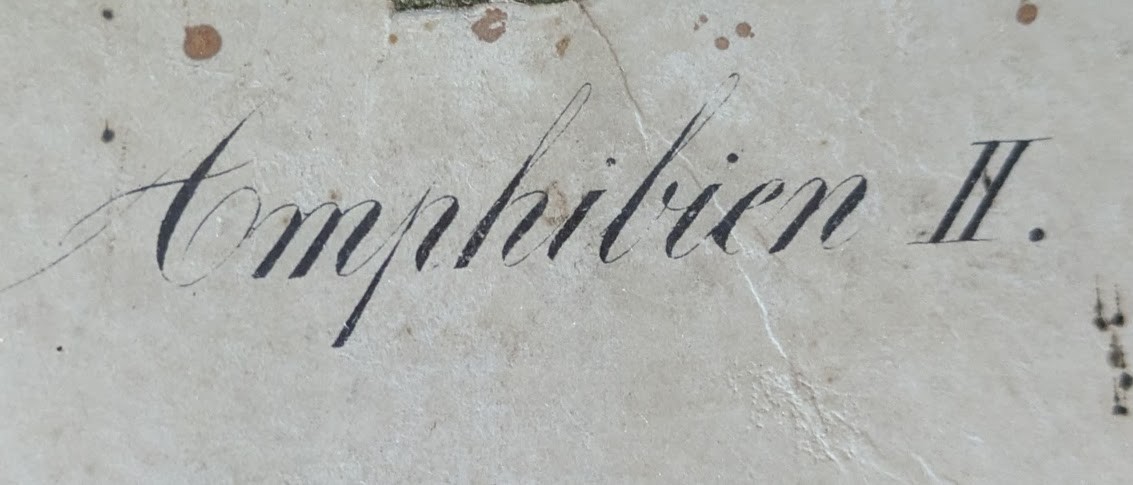 Amphibien II.